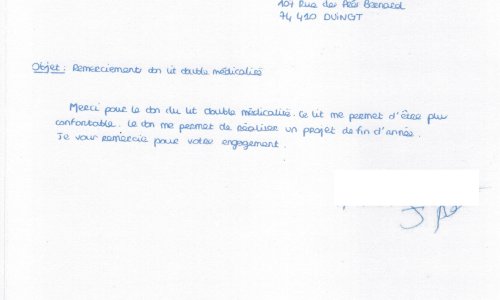 107 Rue des Prés Bernard
74 410 DUINGT
Objet : Remerciements don lit double médicalisé
Merci pour le don du lit double médicalisé. Ce lit me permet d'être plus
confortable. Le don me permet de réaliser un projet de fin d'année.
Je vous remercie pour votre engagement.